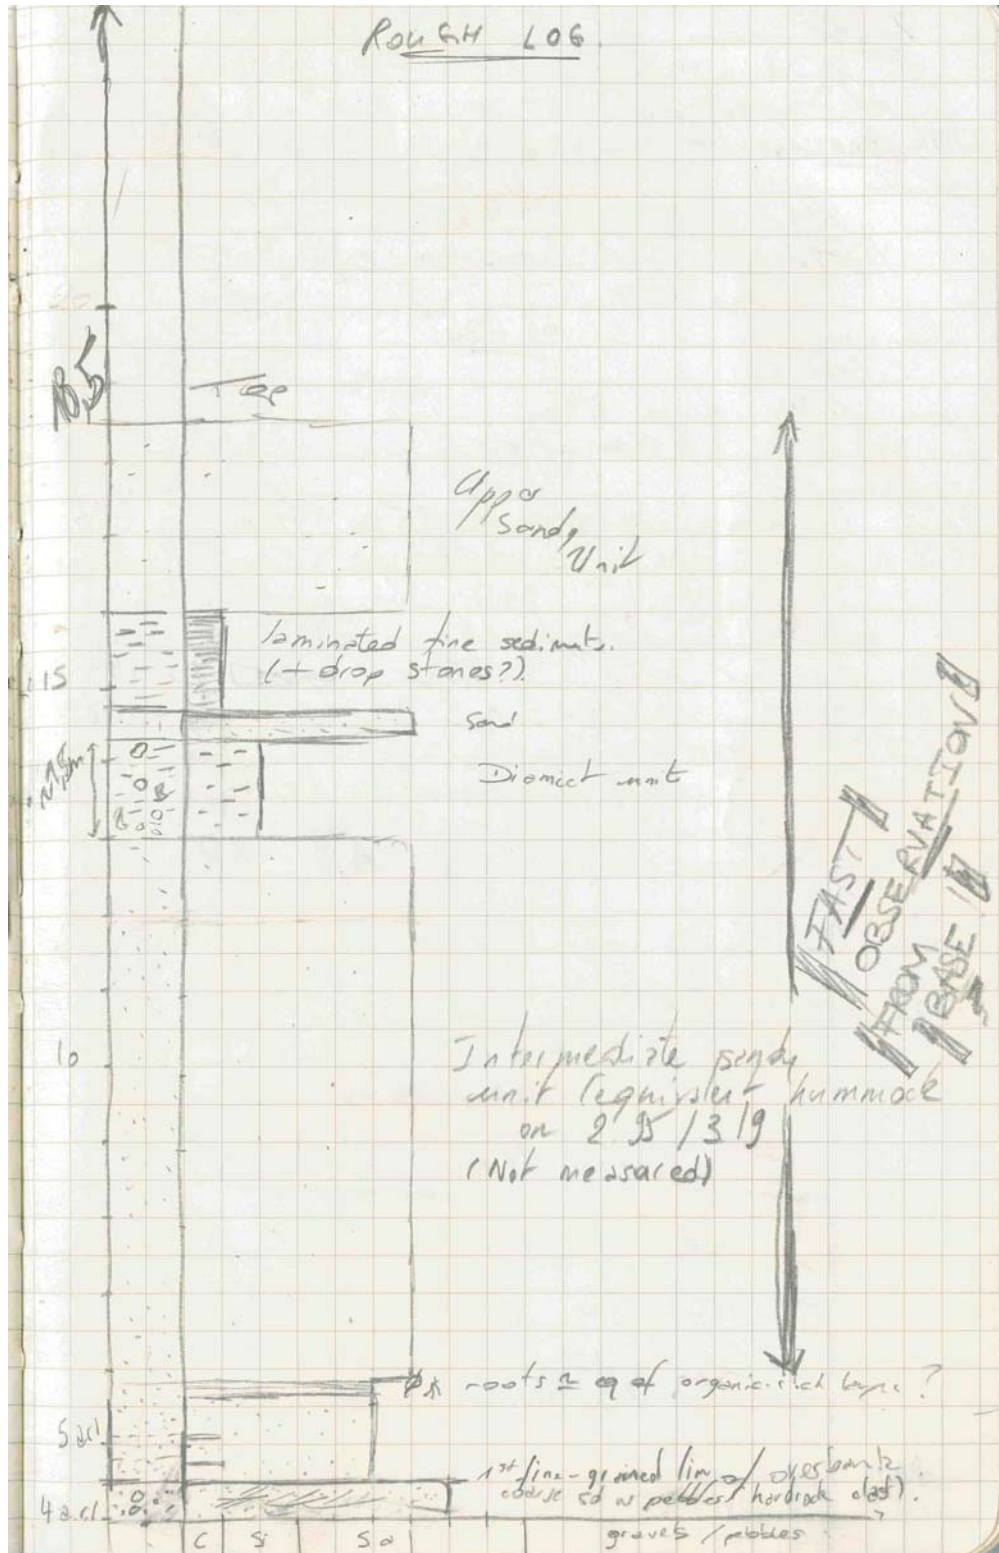 ROUGH LOG
20
18,5
Top
Upper
Sandy
Unit
laminated fine sediments.
(+ drop stones?)
15
Sand
~1,5m
Diamict unit
FAST
OBSERVATION
FROM
BASE !!
10
Intermediate sandy
unit (equivalent hummock
on 2 95 / 319
(Not measured)
roots ≈ eq of organic-rich layer ?
5 a.r.l
1st fine-grained lim of overbank
coarse sd w pebbles (hardrock clast).
4 a.r.l
C Si Sa gravels / pebbles